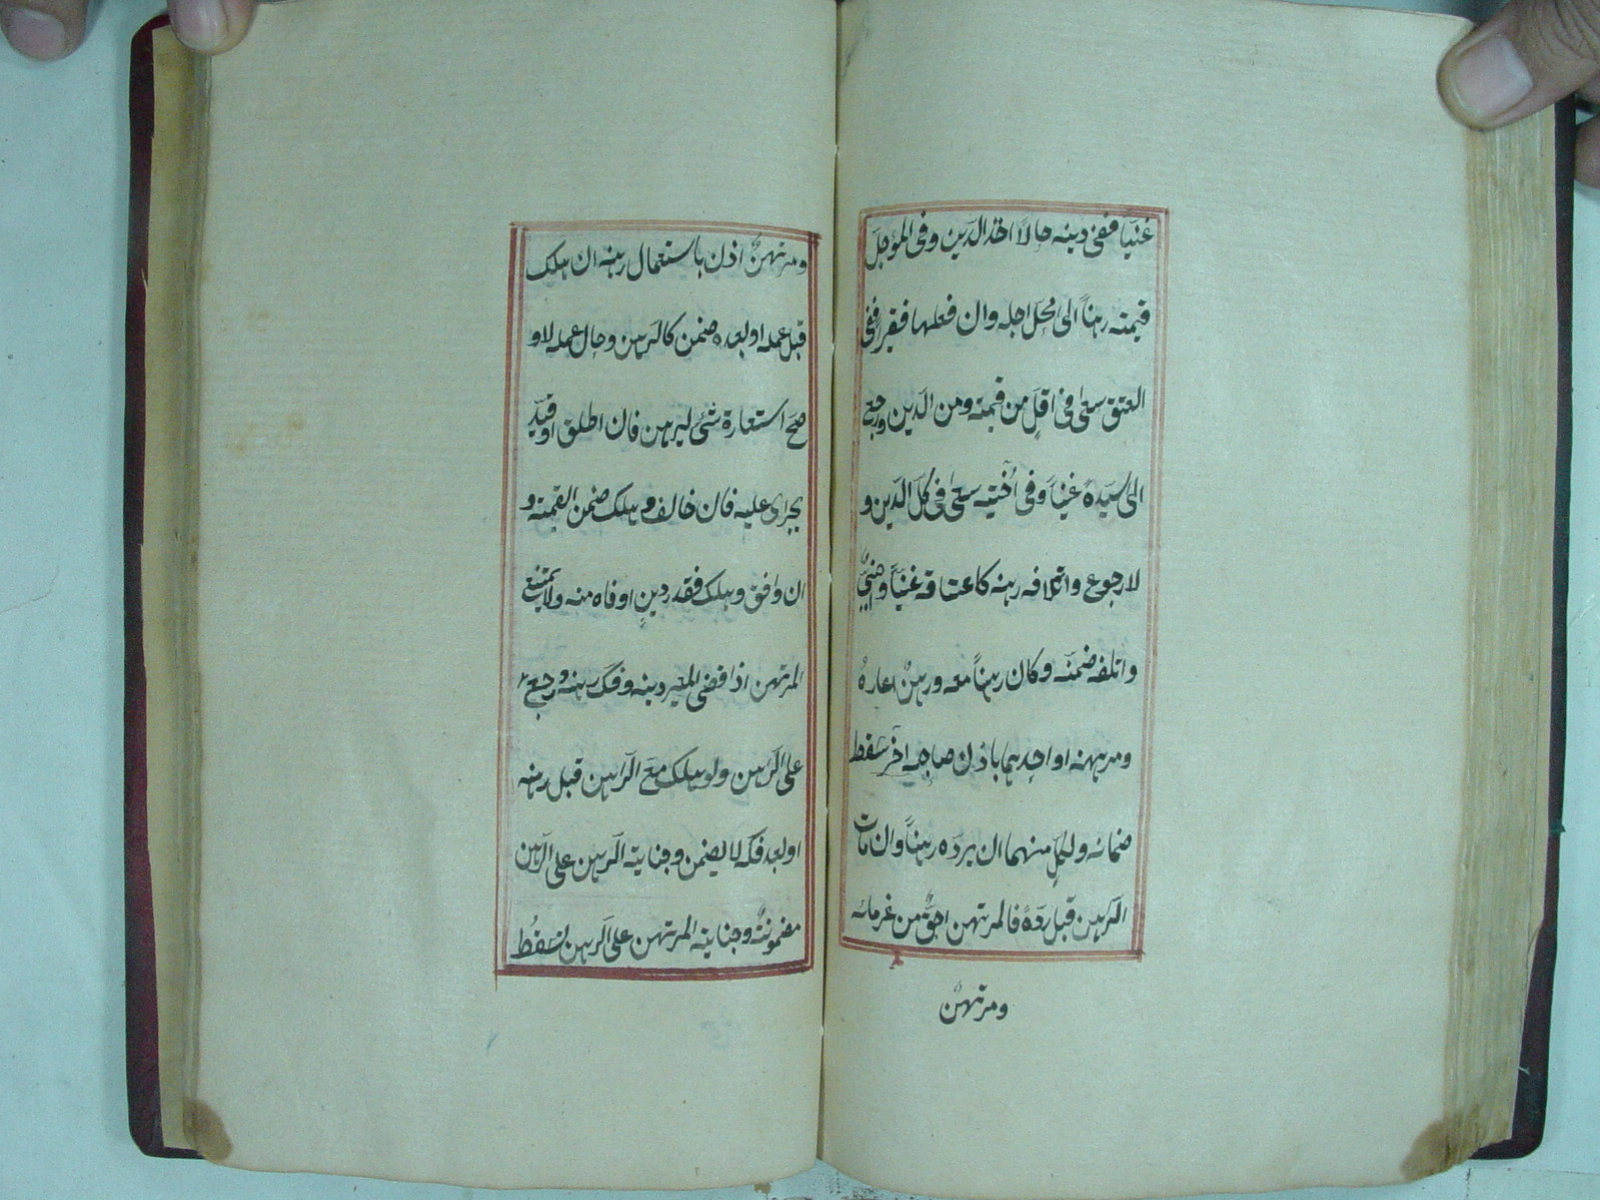 غنيّاً ففى دينه حالاً اخذ الدّين وفى المؤجّل
قيمته رهناً الى محلّ اجله وان فعلها فقيراً ففى
العتق سعى فى اقلّ من قيمته ومن الدّين ورجع
الى سيّده غنيّاً وفى اختيه سعى فى كلّ الدّين و
لا رجوع واتلافه رهنه كاعتاقه غنيّاً واجنبىّ
واتلفه ضمنه وكان رهناً معه ورهنٌ اعاره
ومرتهنه او احدهما باذن صاحبه آخر سقط
ضمانه ولكلّ منهما ان يردّه رهناً وان مات
الرّاهن قبل ردّه فالمرتهن احقّ من غرمائه
ومرتهن
ومرتهنٌ اذن باستعمال رهنه ان هلك
قبل عمله او بعده ضمن كالرّهن وحال عمله لا و
صحّ استعارة شئ ليرهن فان اطلق او قيّد
يجرى عليه فان خالف و هلك ضمن القيمة و
ان وافق وهلك فقدر دينٍ اوفاه منه ولا يمتنع
المرتهن اذا قضى المعير دينه وفكّ رهنه ورجع
على الرّاهن ولو هلك مع الرّاهن قبل رهنه
او بعد فكّه لا يضمن وجناية الرّاهن على الرّهن
مضمونةٌ وجناية المرتهن على الرّهن تسقط